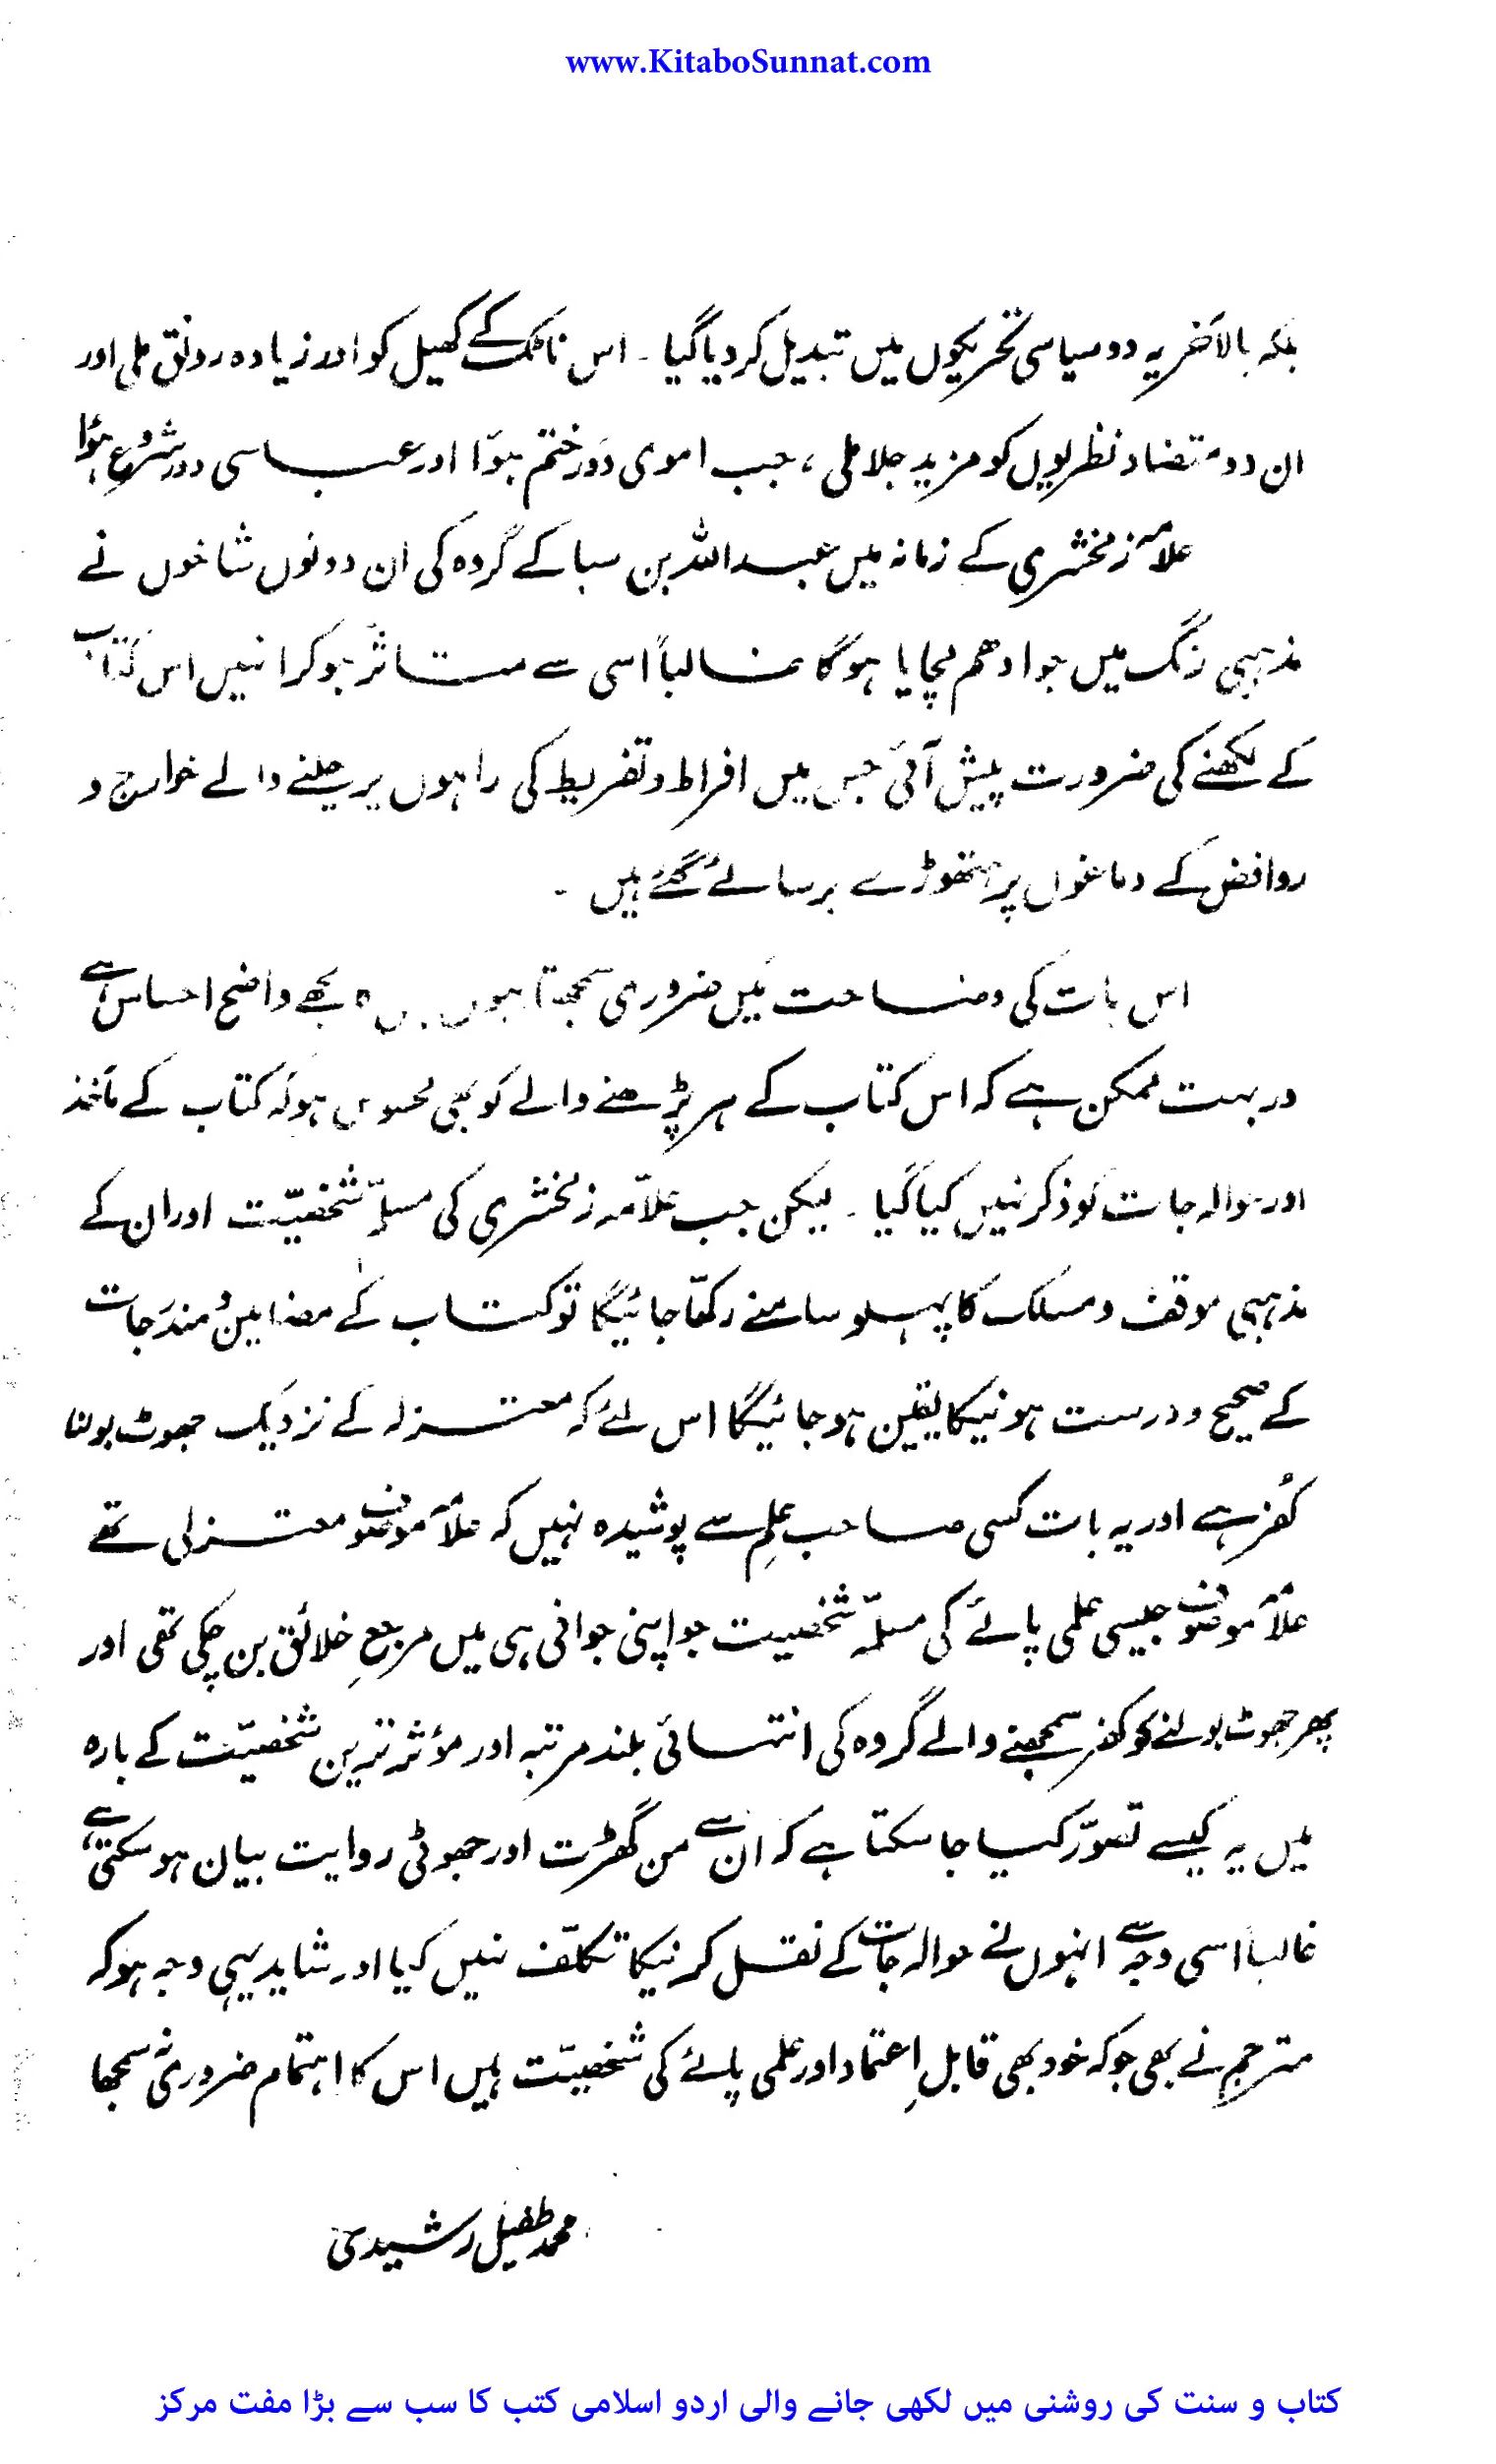 www.KitaboSunnat.com
بلکہ بالآخر یہ دو سیاسی تحریکوں میں تبدیل کر دیا گیا ۔ اس ناٹک کے کھیل کو اور زیادہ رونق ملی اور
ان دو متضاد نظریوں کو مزید جلا ملی ، جب اموی دَور ختم ہوَا اور عباسی دور شروع ہوُا
علامہ زمخشری کے زمانہ میں عبداللہ بن سبا کے گروہ کی ان دونوں شاخوں نے
مذہبی رنگ میں جو اودھم مچایا ہوگا غالباً اسی سے متاثر ہو کر انہیں اس کتاب
کے لکھنے کی ضرورت پیش آئی جس میں افراط و تفریط کی راہوں پر چلنے والے خوارج و
روافض کے دماغوں پر ہتھوڑے برسائے گئے ہیں ۔
اس بات کی وضاحت میں ضروری سمجھتا ہوں مجھے واضح احساس ہے
در بہت ممکن ہے کہ اس کتاب کے ہر پڑھنے والے کو بھی محسوس ہو کہ کتاب کے ماٰخذ
اور حوالہ جات کو ذکر نہیں کیا گیا ۔ لیکن جب علاّمہ زمخشری کی مسلّمہ شخصیّت اور ان کے
مذہبی موقف و مسلک کا پہلو سامنے رکھّا جائیگا تو کتاب کے مضامین و مندرَجات
کے صحیح و درست ہونیکا یقین ہو جائیگا اس لئے کہ معتزلہ کے نزدیک جھوٹ بولنا
کُفر ہے اور یہ بات کسی صاحب علِم سے پوشیدہ نہیں کہ علاّمہ موصوف معتزلی تھے
علاّمہ موصوف جیسی علمی پائے کی مسلّمہ شخصیت جو اپنی جوانی ہی میں مرجعِ خلائق بن چکی تھی اور
پھر جھوٹ بولنے کو کفر سمجھنے والے گروہ کی انتہائی بلند مرتبہ اور مؤثر ترین شخصیّت کے بارہ
میں یہ کیسے تصوّر کیا جا سکتا ہے کہ ان سے من گھڑت اور جھوٹی روایت بیان ہو سکتی ہے
غالباً اسی وجہ سے انہوں نے حوالہ جات کے نقل کرنیکا تکلّف نہیں کیا اور شاید یہی وجہ ہو کہ
مترجم نے بھی جو کہ خود بھی قابلِ اعتماد اور علمی پائے کی شخصیّت ہیں اس کا اہتمام ضروری نہ سمجھا
محمد طفیل رشیدی
کتاب و سنت کی روشنی میں لکھی جانے والی اردو اسلامی کتب کا سب سے بڑا مفت مرکز